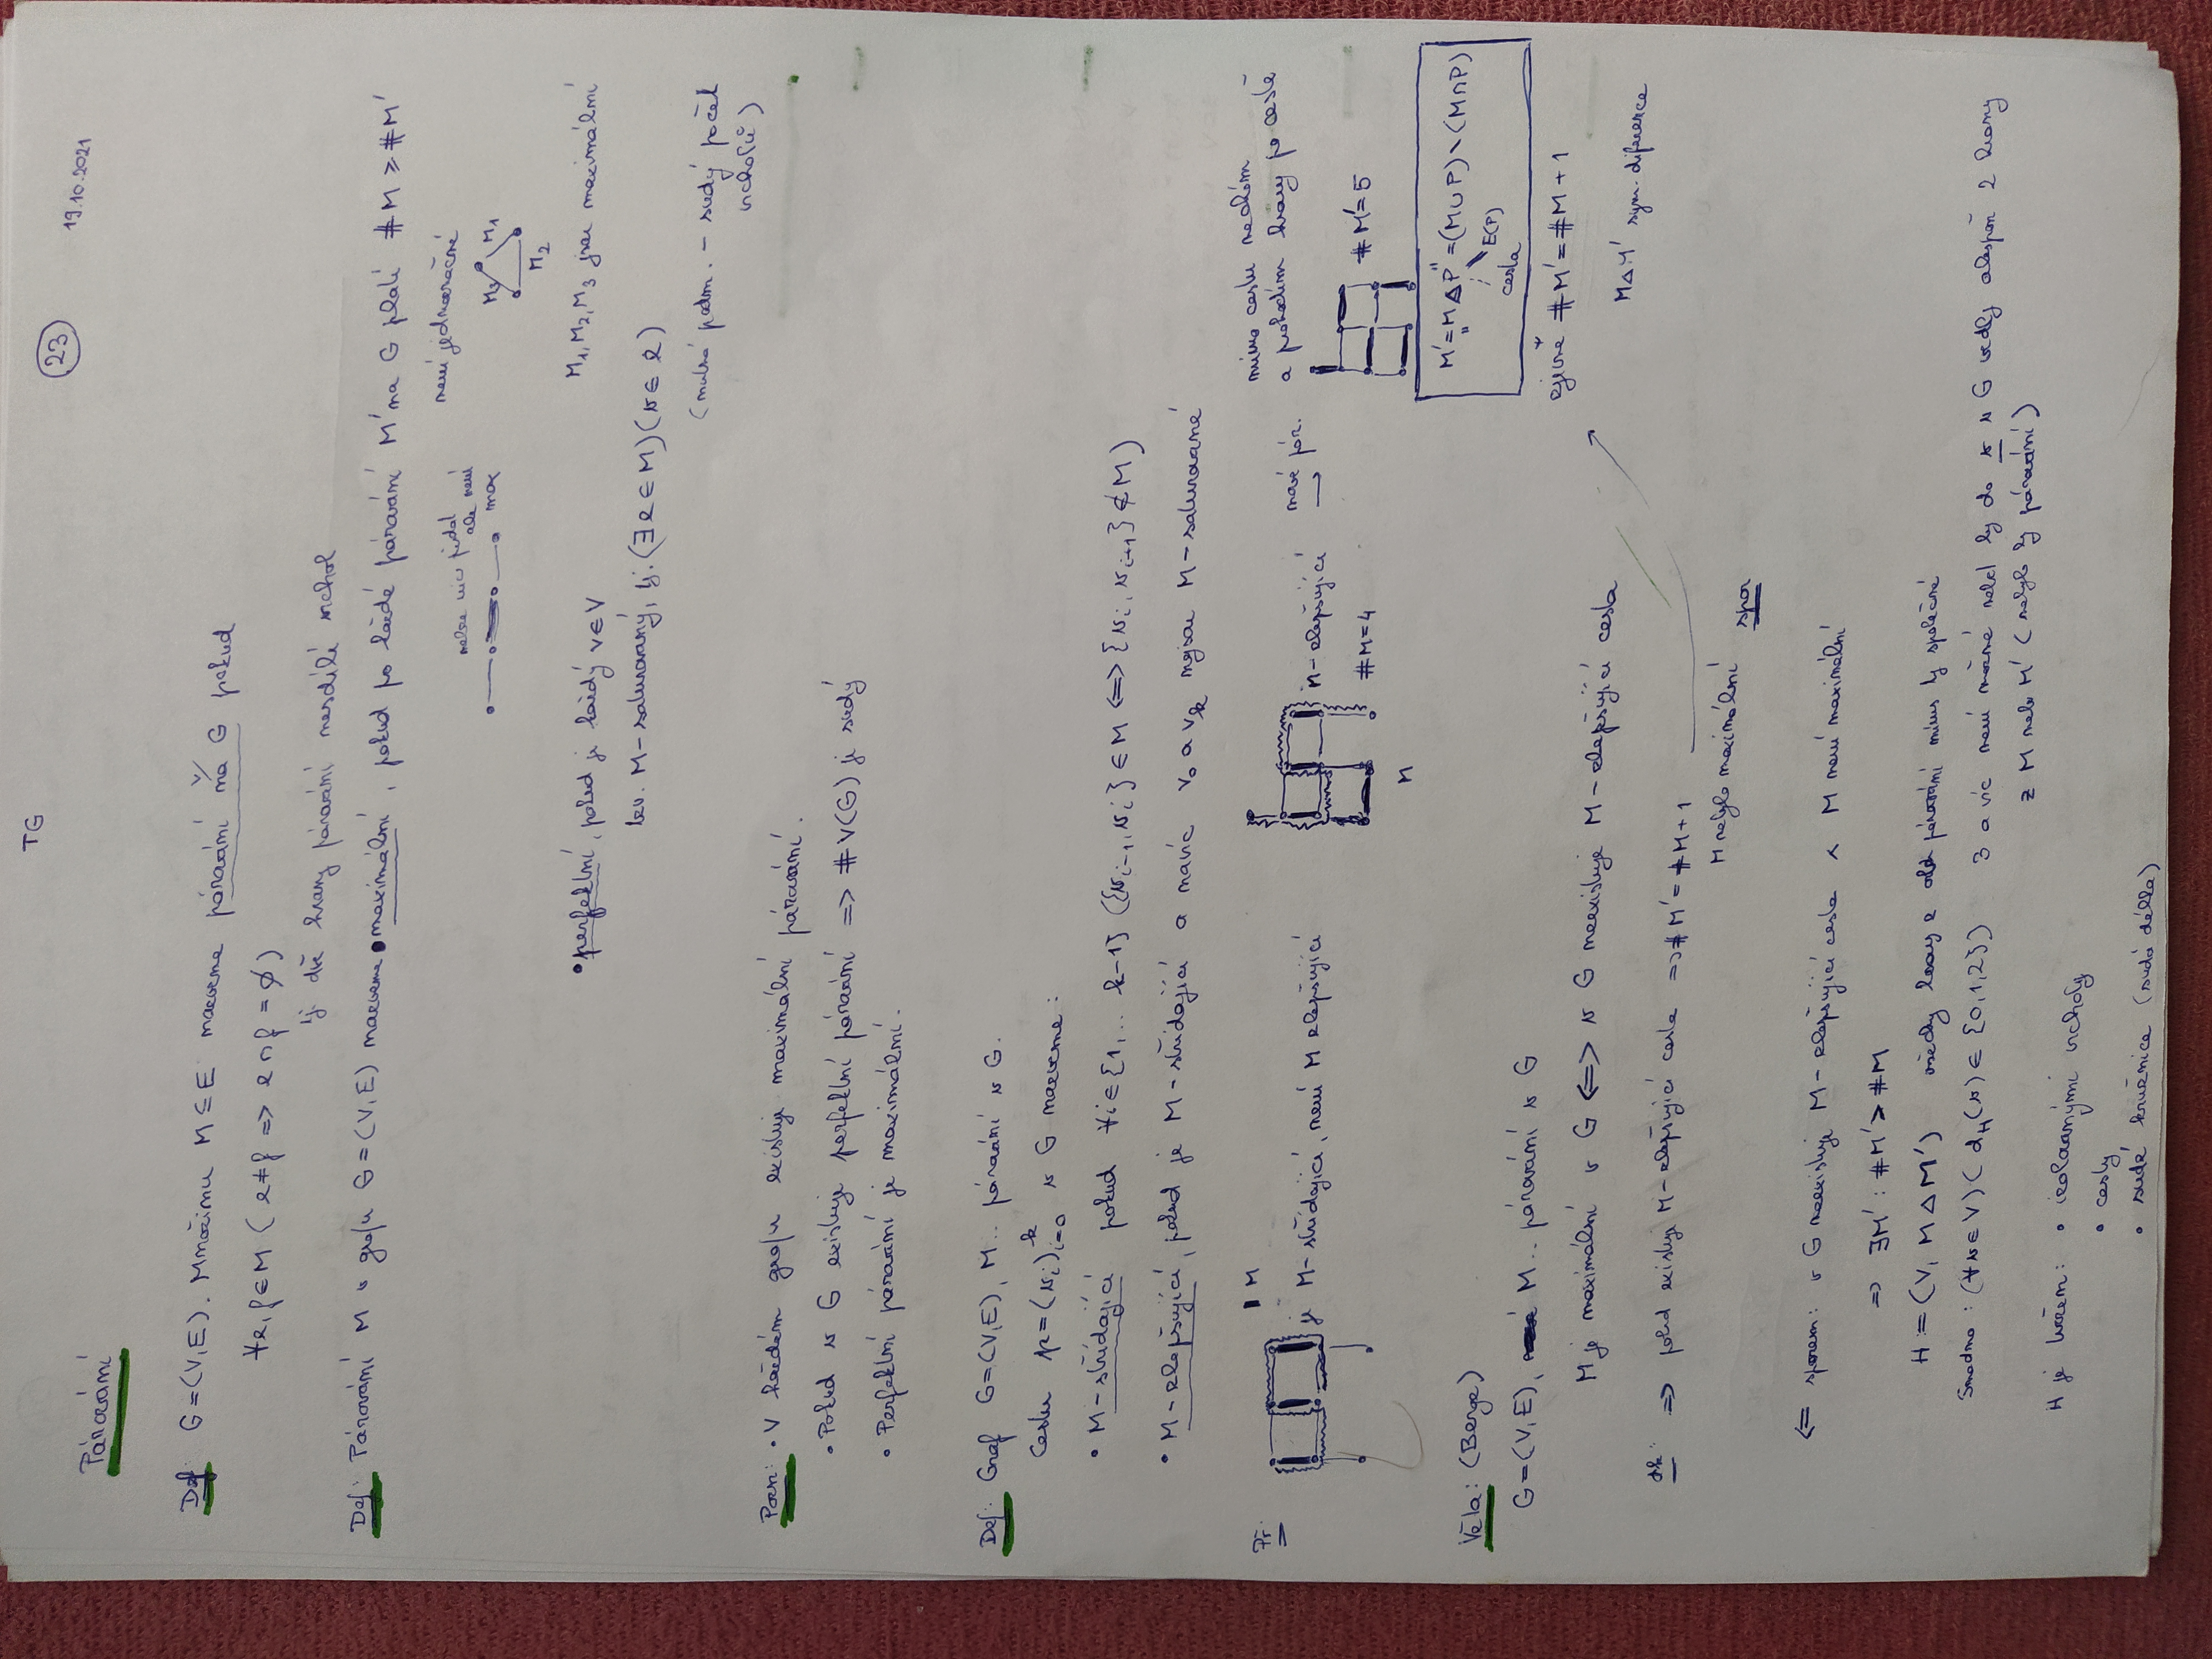 TG
23
19.10.2021
Párování
Def: G=(V,E). Množinu M⊆E nazveme párování na G pokud
∀e,f∈M (e≠f => e∩f=∅)
tj dvě hrany párování nesdílí vrchol
Def: Párování M v grafu G=(V,E) nazveme • maximální, pokud po každé párování M' na G platí #M ≥ #M'
nelze nic přidat
ale není
max
není jednoznačné
M3 M1
M2
M1,M2,M3 jsou maximální
• perfektní, pokud je každý v∈V
tzv. M-saturovaný, tj. (∃e∈M)(v∈e)
(nutná podm. - sudý počet
vrcholů)
Pozn: • V každém grafu existuje maximální párování.
• Pokud v G existuje perfektní párování => #V(G) je sudý
• Perfektní párování je maximální.
Def: Graf G=(V,E), M.. párování v G.
Cestu p=(vi)i=0^k v G nazveme:
• M-střídající pokud ∀i∈{1,... k-1} ({vi-1,vi}∈M <=> {vi,vi+1}∉M)
• M-zlepšující, pokud je M-střídající a navíc v0 a vk nejsou M-saturované
Př:
M
je M-střídající, není M zlepšující
M
n-zlepšující
#M=4
nové pár.
→
mimo cestu nechám
a prohodím hrany po cestě
#M'=5
M'="MΔP"=(M∪P)∖(M∩P)
E(P)
cesta
zjevně #M'=#M+1
MΔM' sym. diference
Věta: (Berge)
G=(V,E), M.. párování v G
M je maximální v G <=> v G neexistuje M-zlepšující cesta
dk: => pokud existuje M-zlepšující cesta => #M'=#M+1
M nebylo maximální spor
<= sporem: v G neexistuje M-zlepšující cesta ∧ M není maximální
=> ∃M': #M'>#M
H:=(V, MΔM') všechny hrany z obě párování mínus ty společné
Snadno: (∀v∈V)(dH(v)∈{0,1,2}) 3 a víc není možné neboť by do v v G vedly alespoň 2 hrany
z M nebo M' (nebylo by párování)
H je tvořen: • izolovanými vrcholy
• cesty
• sudé kružnice (sudá délka)